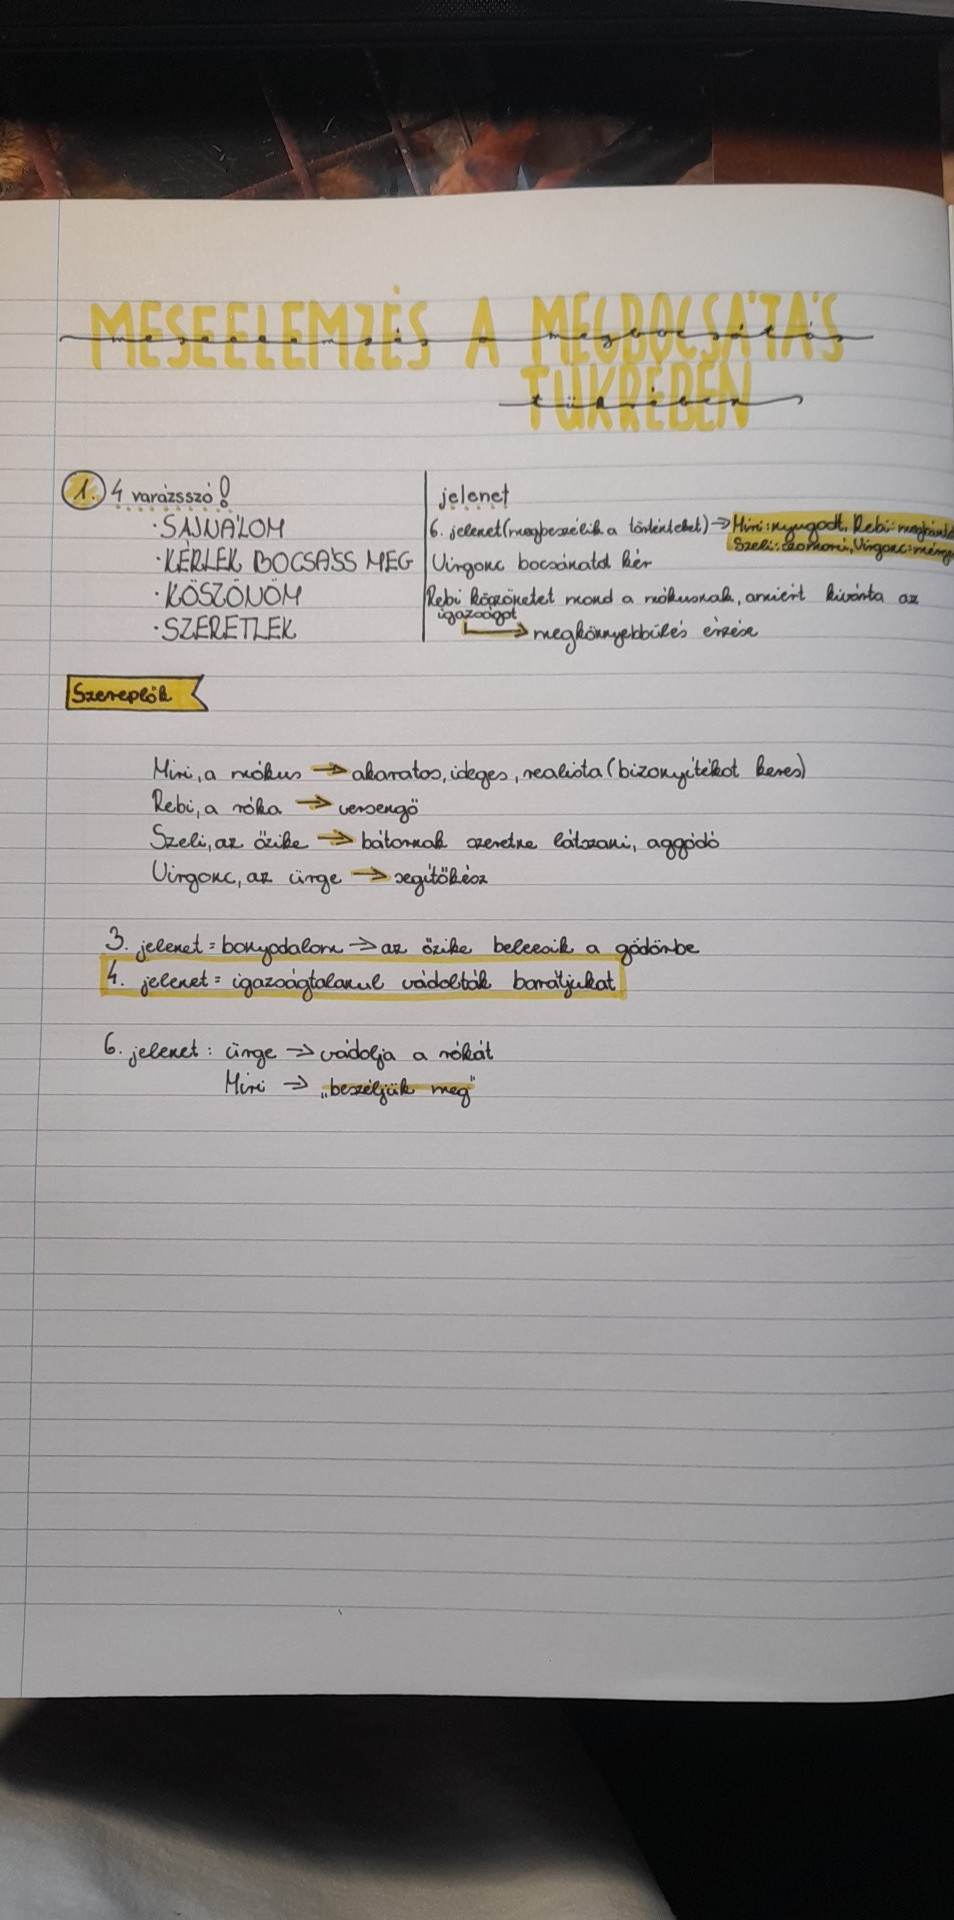 MESEELEMZÉS A MEGBOCSÁTÁS
meseelemzés a megbocsátás
TÜKRÉBEN
tükrében
1. 4 varázsszó!
· SAJNÁLOM
· KÉRLEK BOCSÁSS MEG
· KÖSZÖNÖM
· SZERETLEK
jelenet
6. jelenet (megbeszélik a történteket) → Miri: nyugodt, Rebi:
Szeli: szomorú, Virgonc:
Virgonc bocsánatot kér
Rebi köszönetet mond a mókusnak, amiért kivárta az
igazságot
→ megkönnyebbülés érzése
Szereplők
Miri, a mókus → akaratos, ideges, realista (bizonyítékot keres)
Rebi, a róka → versengő
Szeli, az őzike → bátornak szeretne látszani, aggódó
Virgonc, az ürge → segítőkész
3. jelenet = bonyodalom → az őzike beleesik a gödörbe
4. jelenet = igazságtalanul vádolták barátjukat
6. jelenet: ürge → vádolja a rókát
Miri → „beszéljük meg"